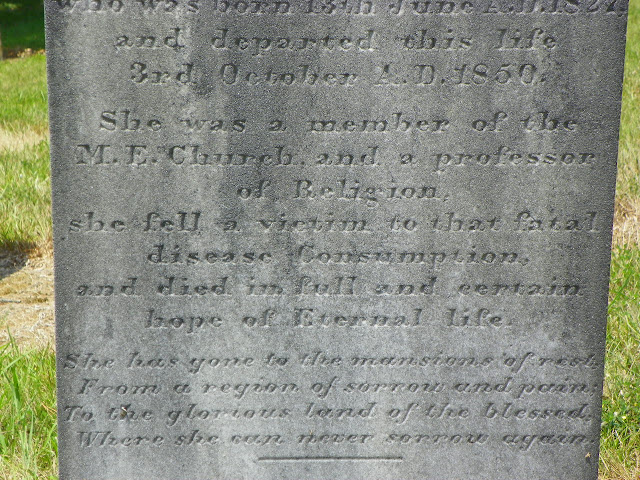 who was born 13th June A.D. 1827.
and departed this life
3rd October A.D. 1850.
She was a member of the
M. E. Church, and a professor
of Religion,
she fell a victim to that fatal
disease Consumption,
and died in full and certain
hope of Eternal life.
She has gone to the mansions of rest
From a region of sorrow and pain;
To the glorious land of the blessed,
Where she can never sorrow again.